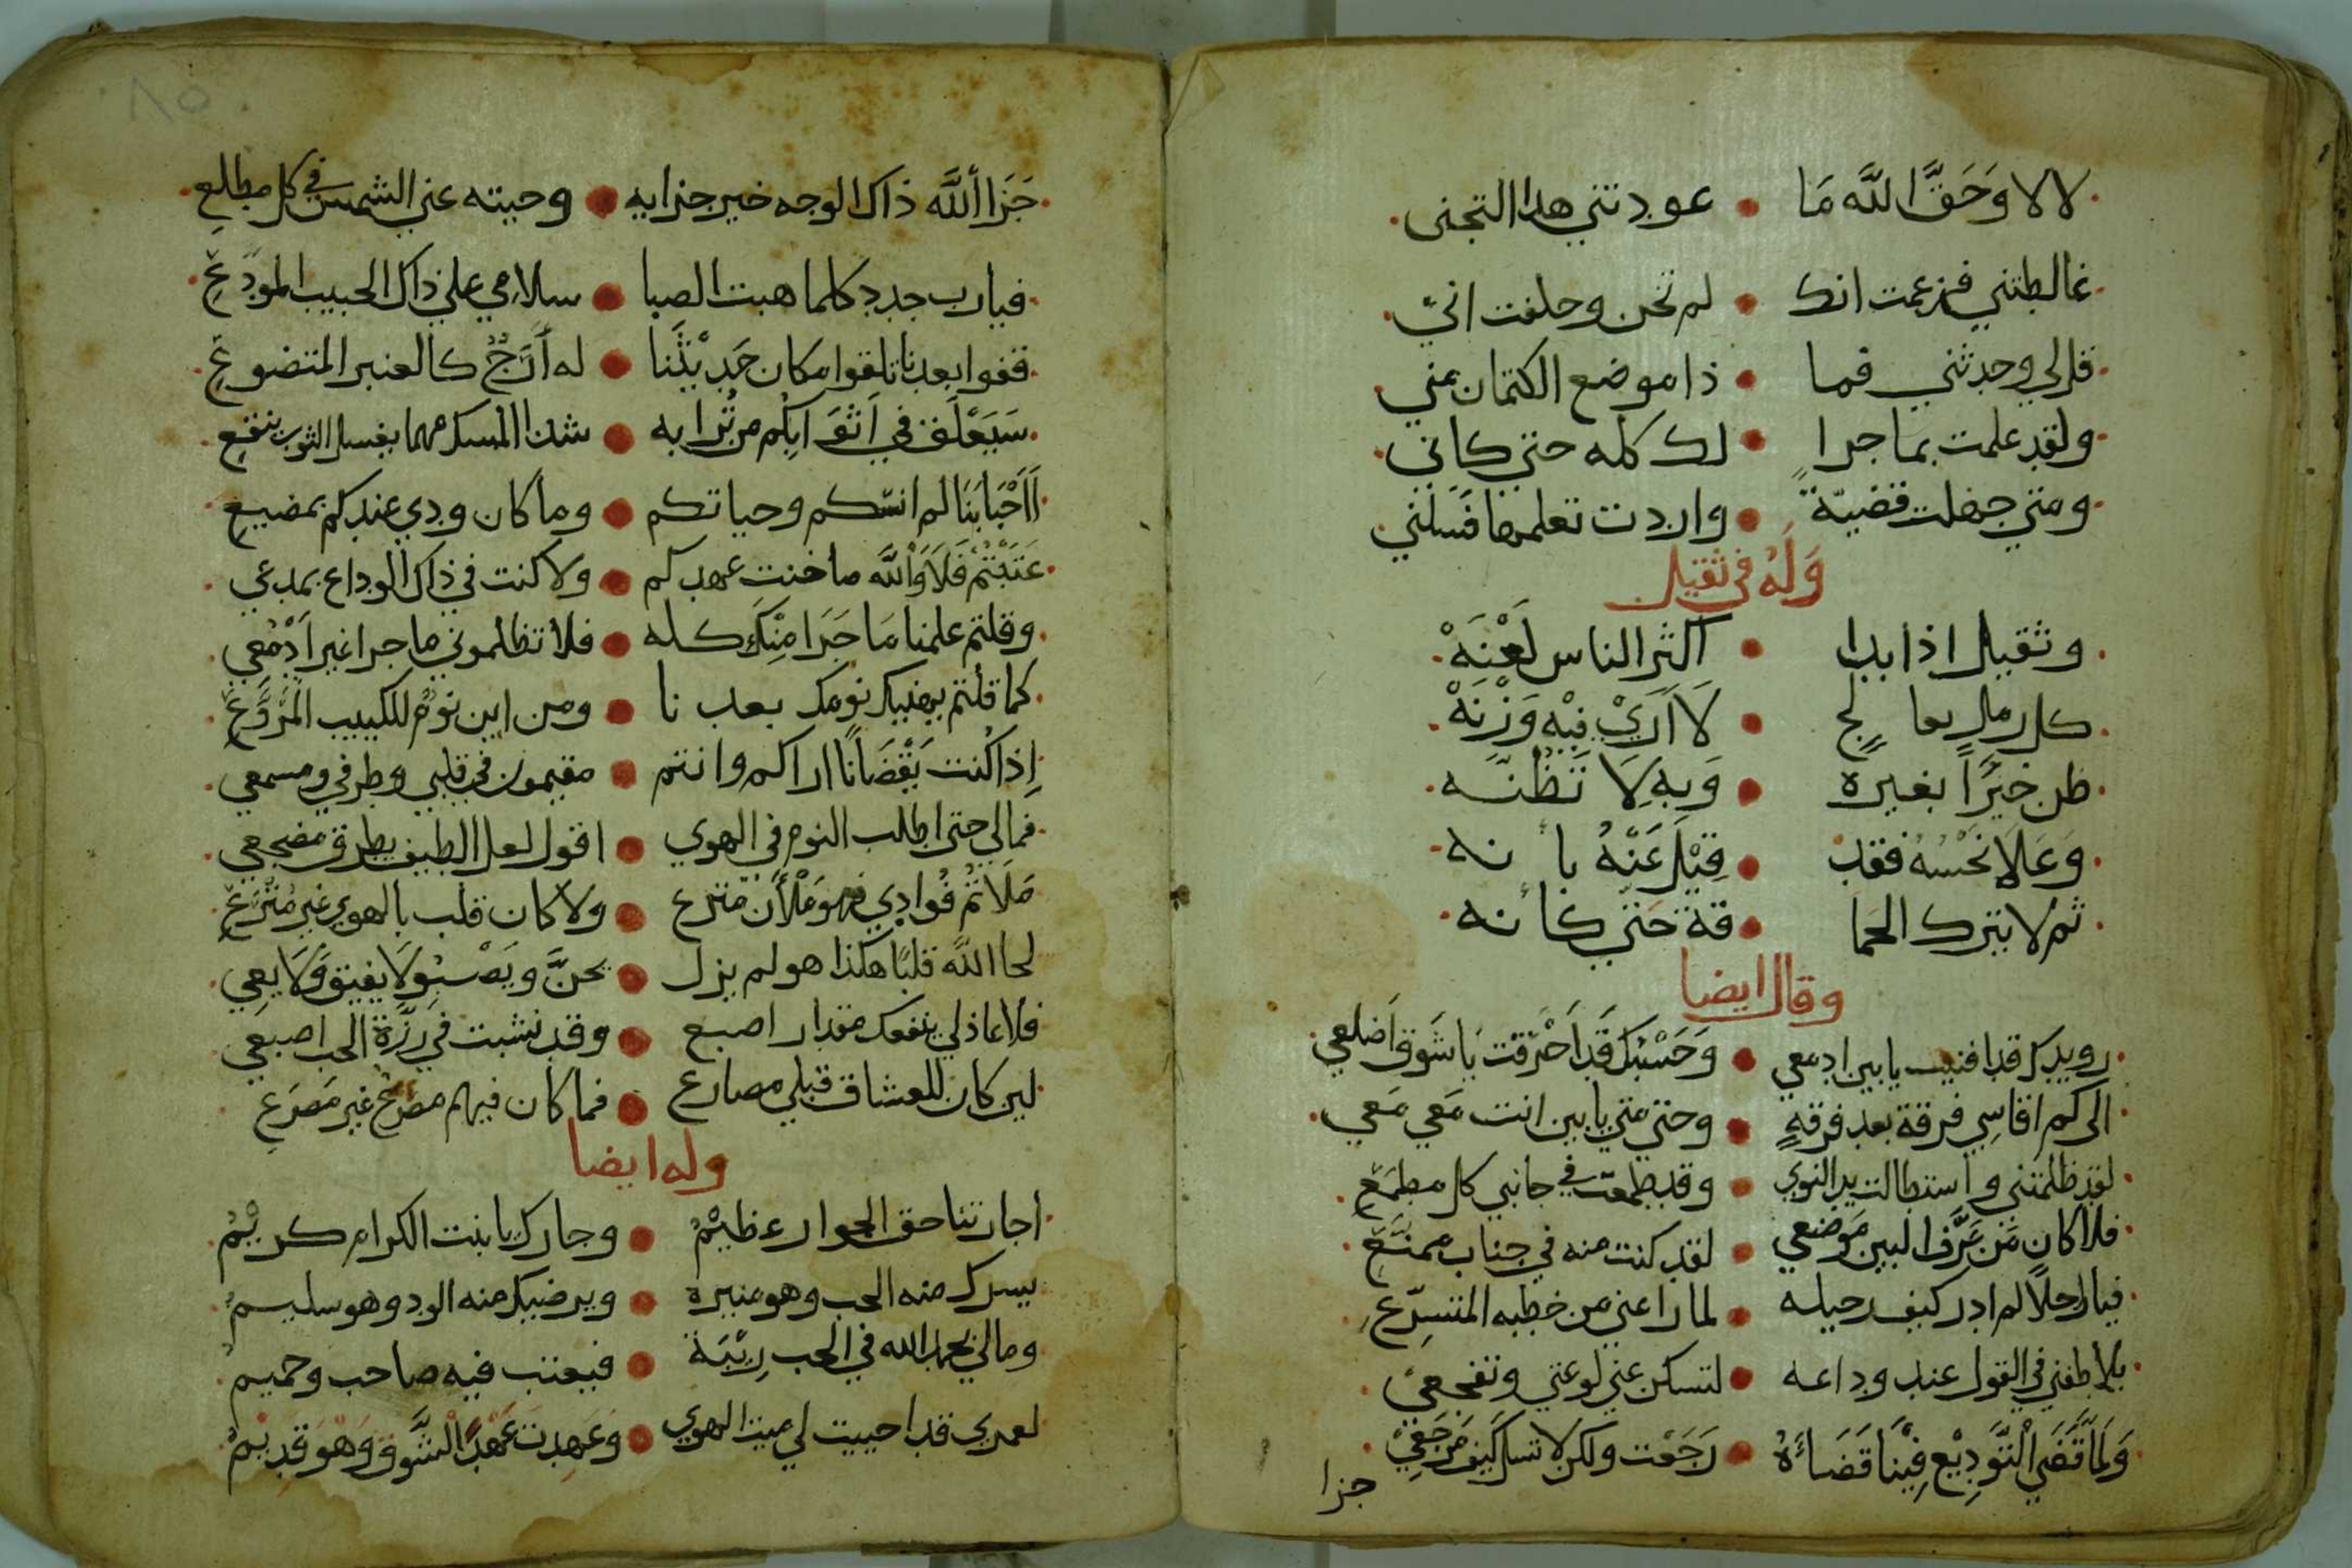 لا لا وَحَقَّ اللَّه مَا • عودتني هدا التجنى
غالطتني فزعمت انك • لم تخن وحلفت اني
قل لي وحدثني فما • ذا موضع الكتمان مني
ولقد علمت بما جرا • لك كله حتي كاني
ومتي جهلت قضيّة • واردت تعلمها فَسَلني
وَلَهُ في ثقيل
وثقيل اذا بدا • اكثر الناس لَعْنَهْ
كل رمل بعا لج • لَا اَرَيْ فِيْهِ وَزْنَهْ
ظن خَيْرًاً بغيره • وَبِهِ لَا تَظُنَّه
وَعَلَا نَحْسُهُ فقد • قِيْلَ عَنْهُ با نه
ثم لا يترك الحما • قة حَتي كأ نه
وقال ايضا
رويدك قد افنيت يا بين ادمعي • وَحَسْبُكَ قَد اَحْرَقت يَا شَوق اَضلعي
الى كم اقاسِي فرقة بعد فرقهٍ • وحتي متي يا بين انت مَعي مَعي
لقد ظلمتني واستطالت يد النوي • وقد طمعت في جانبي كل مطمَعِ
فلا كان مَن عَرَّف البين مَوضعي • لقد كنت منه في جناب ممنَّعِ
فيا راحلًا لم ادر كيف رحيله • لما راعني من خطبه المتسرِّعِ
يلاطفني في القول عند وداعه • لتسكن عني لوعتي وتفجعي
وَلمَّا قَضَي الْتَّوَدِيْع فِيْنَا قَضَاءَهُ • رَجَعْت ولكن لا تسل كَيف مَرجَعِيْ
جزا
جَزَا أللَّه ذاك الوجه خير جزايه • وحيته عني الشمس في كل مطلعِ
فيارب جدد كلما هبت الصبا • سلامي علي ذاك الحبيب المودَّعِ
قفوا بعدنا تلقوا مكان حَدِيْثَنا • له أَرَجٌ كالعنبر المتضوعِ
سَيَعْلَق في اَثوَابِكُم من تُرابه • شذا المسك مهما يغسل الثوب ينقع
اَاَحْبَابَنَا لم انسَكم وحياتكم • وما كان ودي عندكم بمضيعِ
عَتَبْتُمُ فَلَا وَاللَّه ما خنت عهدكم • ولا كنت في ذاك الوداع بمدعي
وقلتم علمنا مَا جَرَا مِنْكَ كله • فلا تظلموني ما جرا غير اَدْمُعِي
كما قلتم يهنيك نومك بعد نا • ومن اين نومٌ للكييب المرَوَّعِ
إِذا كُنت يَقْضَانًا اراكم وانتم • مقيمون في قلبي وطرفي ومسمعي
فمالي حتى اطلب النوم في الهوي • اقول لعل الطيف يطرق مضجعي
مَلَاتُم فُوادي فهو مَلْأَن مترع • ولا كان قلب بالهوي غير مُتْرَعِ
لحا اللَّه قلبًا هكذا هو لم يزل • يحنَّ ويَصْبُو لَا يفيق وَلَا يعِي
فلا عاذلي ينفعك مقدار اصبع • وقد نشبت في رزَّة الحب اصبعي
لين كان للعشاق قبلي مصارع • فما كان فيهم مصرعٌ غير مَصرَعِ
وله ايضا
اجارتنا حق الجوار عظيْمُ • وجارك يا بنت الكرام كريْمُ
يسرك منه الحب وهو منيره • ويرضيك منه الود وهو سليم
ومالي بحمد الله في الحب رِيْبَة • فيعتب فيه صاحب وحميم
لعمري قد احييت لي ميت الهوي • وَعَهِدتَ عَهْدًا لِلشَّوق وَهْوَ قَدِيْمُ